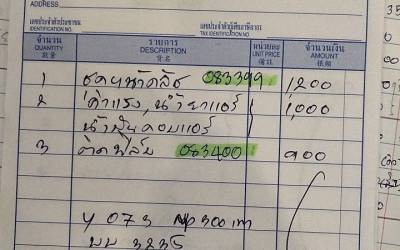 ADDRESS
เลขประจำตัวประชาชน
IDENTIFICATION NO.
เลขประจำตัวผู้เสียภาษีอากร
TAX IDENTIFICATION NO.
จำนวน
QUANTITY
數量
รายการ
DESCRIPTION
貨名
หน่วยละ
UNIT PRICE
價錢
จำนวนเงิน
AMOUNT
銀碼
1 ชุดหน้าคลัช 083399 1,200
2 ค่าแรง, น้ำยาแอร์ 1,000
น้ำมันคอมแอร์
3 083400 900
073 300
3235